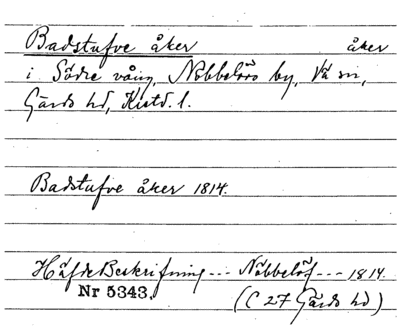 Badstufve åker åker
i Södre vång, Nöbbelövs by, Vä sn,
Gärds hd, Kristd. l.
Badstufve åker 1814.
HäfdeBeskrifning --- Nöbbelöf --- 1814
Nr 5343.
(C 27 Gärds hd)